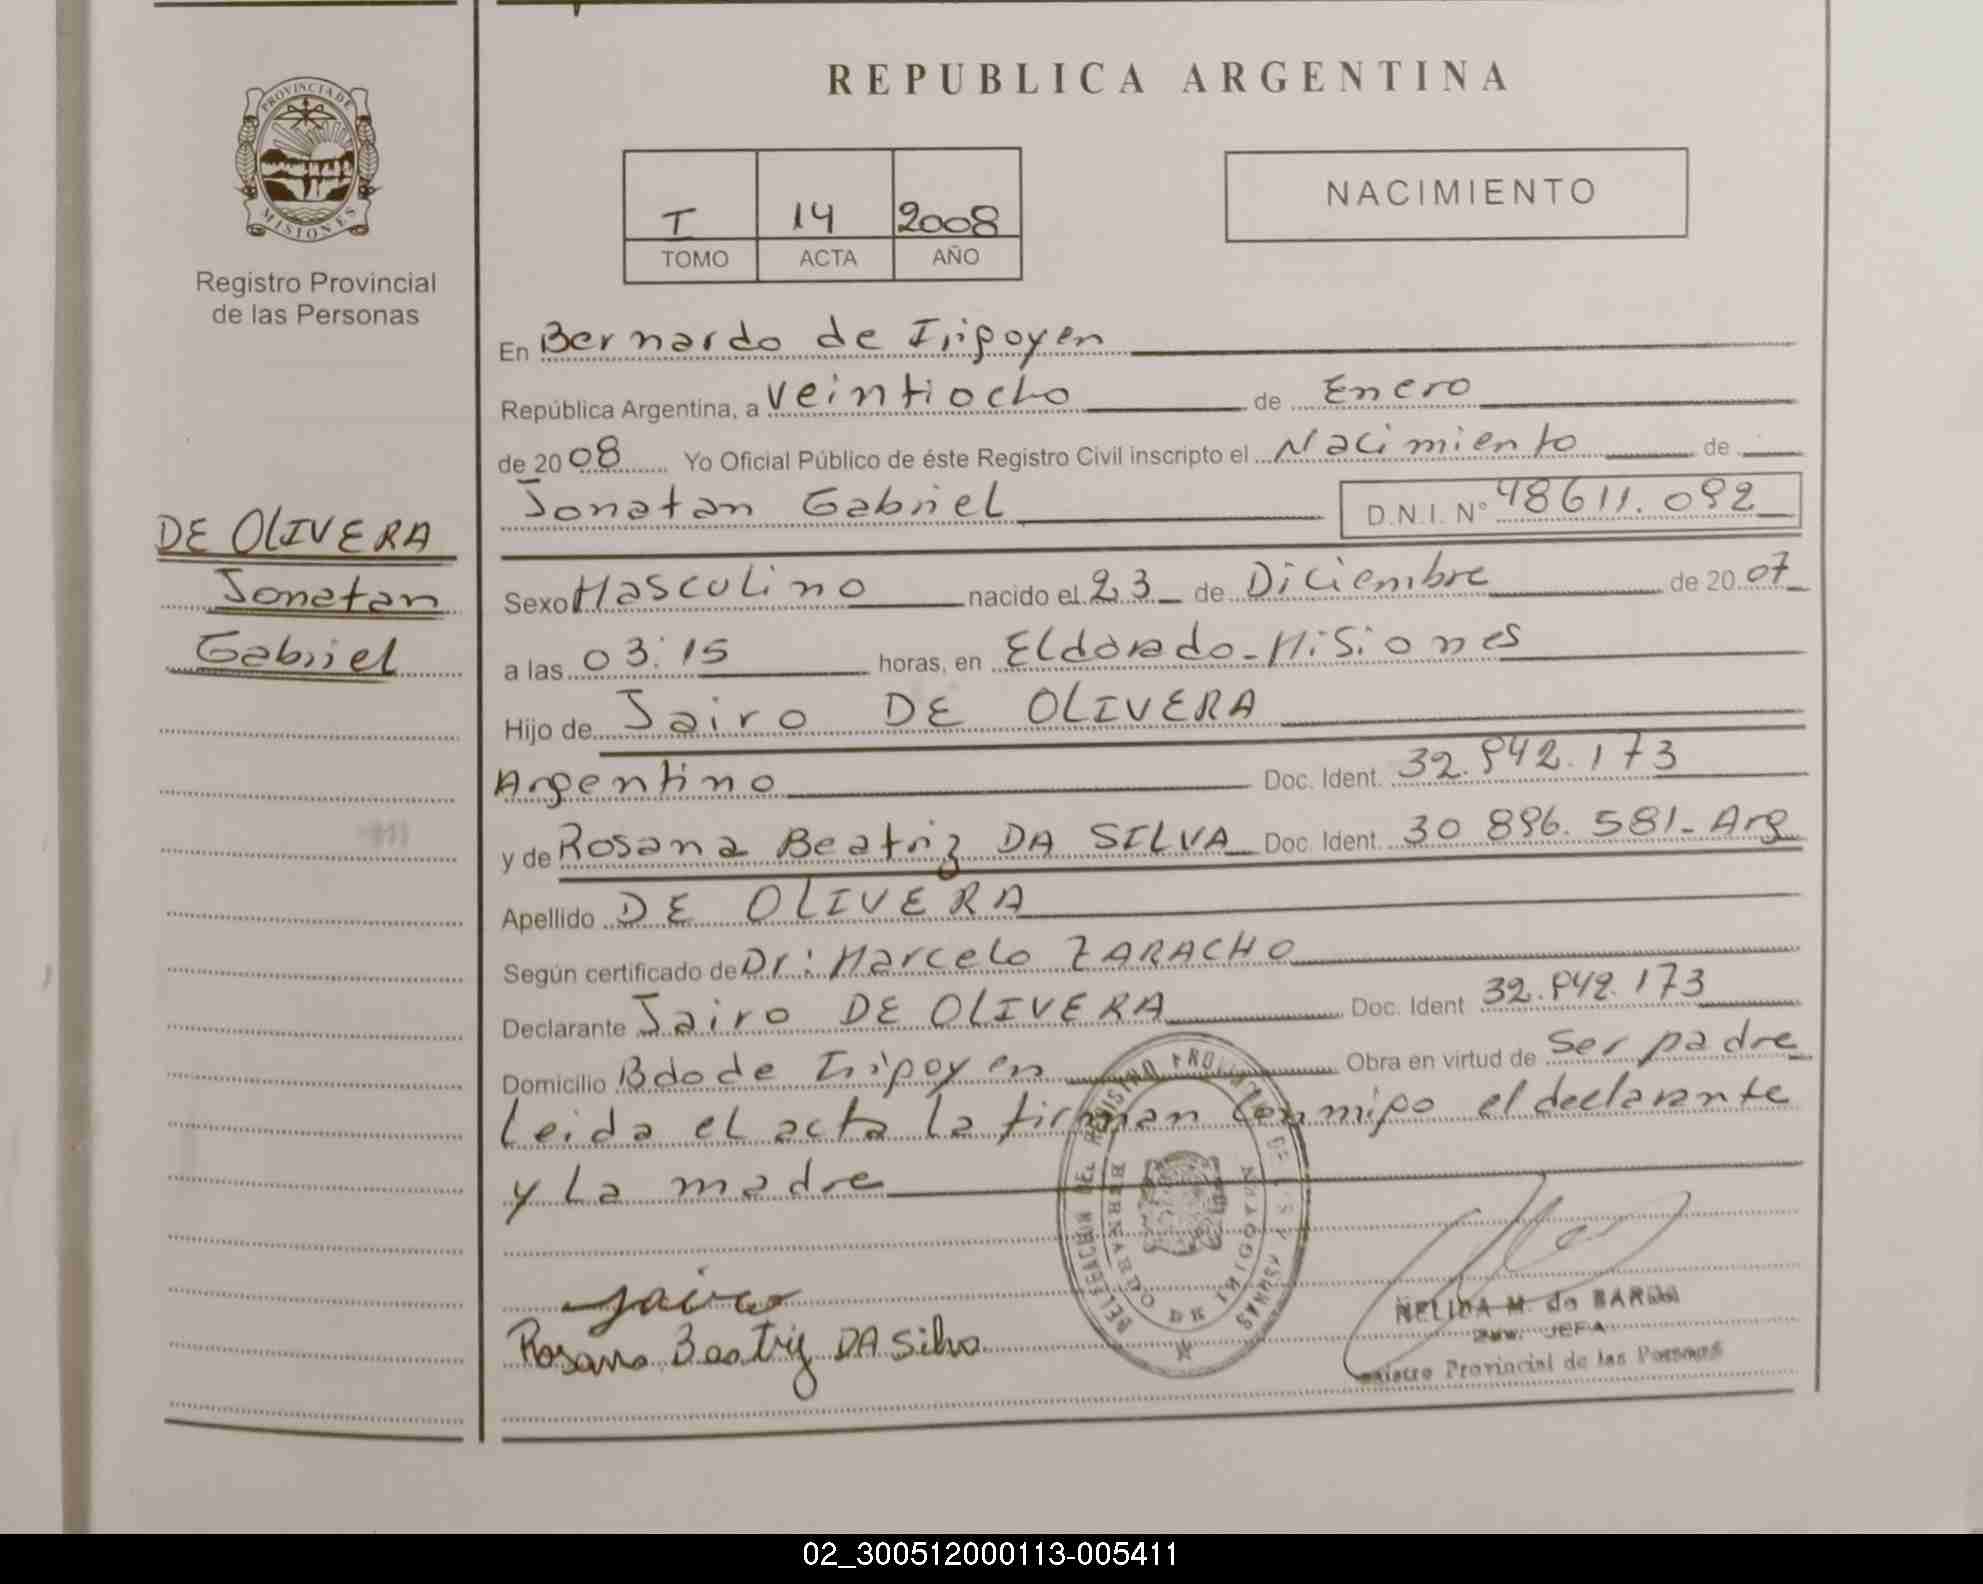 REPUBLICA ARGENTINA
PROVINCIA DE MISIONES
Registro Provincial
de las Personas
T 14 2008
TOMO ACTA AÑO
NACIMIENTO
DE OLIVERA
Jonatan
Gabriel
En Bernardo de Irigoyen
República Argentina, a veintiocho de Enero
de 2008 Yo Oficial Público de éste Registro Civil inscripto el Nacimiento de
Jonatan Gabriel D.N.I. Nº 48611.092
Sexo Masculino nacido el 23 de Diciembre de 2007
a las 03:15 horas, en Eldorado-Misiones
Hijo de Jairo DE OLIVERA
Argentino Doc. Ident. 32.942.173
y de Rosana Beatriz DA SILVA Doc. Ident. 30 896.581- Arg
Apellido DE OLIVERA
Según certificado de Dr: Marcelo ZARACHO
Declarante Jairo DE OLIVERA Doc. Ident 32.942.173
Domicilio Bdo de Irigoyen Obra en virtud de Ser padre
Leida el acta la firman conmigo el declarante
y la madre
Jairo
Rosana Beatriz DA Silva
DELEGACION DEL REGISTRO PROVINCIAL DE LAS PERSONAS
BERNARDO DE IRIGOYEN
NELIDA M. de
JEFA
Provincial de las Personas
02_300512000113-005411